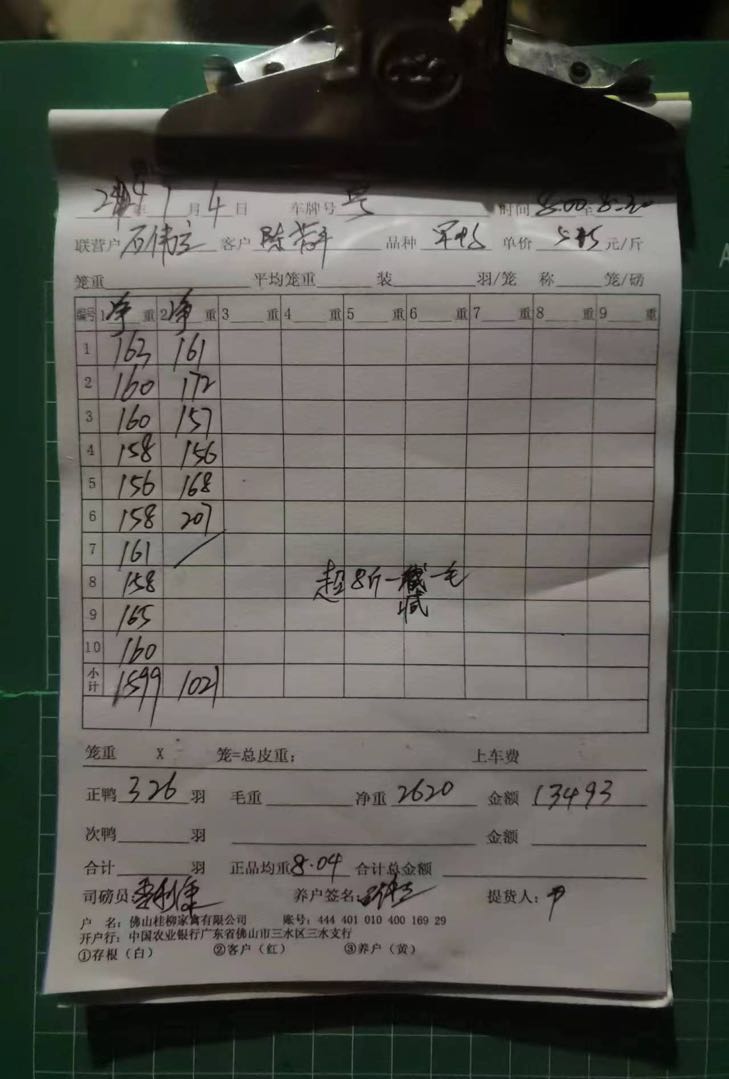 24年1月4日 车牌号 时间 8:00至8:30
联营户 石伟 客户 陈 品种 单价 5.15 元/斤
笼重 平均笼重 装 羽/笼 称 笼/磅
编号 1 净 重 2 净 重 3 重 4 重 5 重 6 重 7 重 8 重 9 重
1 163 161
2 160 172
3 160 157
4 158 156
5 156 168
6 158 207
7 161
8 158
超8斤一 减一毛
9 165
10 160
小计 1599 1021
笼重 X 笼=总皮重： 上车费
正鸭 326 羽 毛重 净重 2620 金额 13493
次鸭 羽 金额
合计 羽 正品均重 8.04 合计总金额
司磅员 养户签名 提货人：
户 名：佛山桂柳家禽有限公司 账号：444 401 010 400 169 29
开户行：中国农业银行广东省佛山市三水区三水支行
①存根（白） ②客户（红） ③养户（黄）